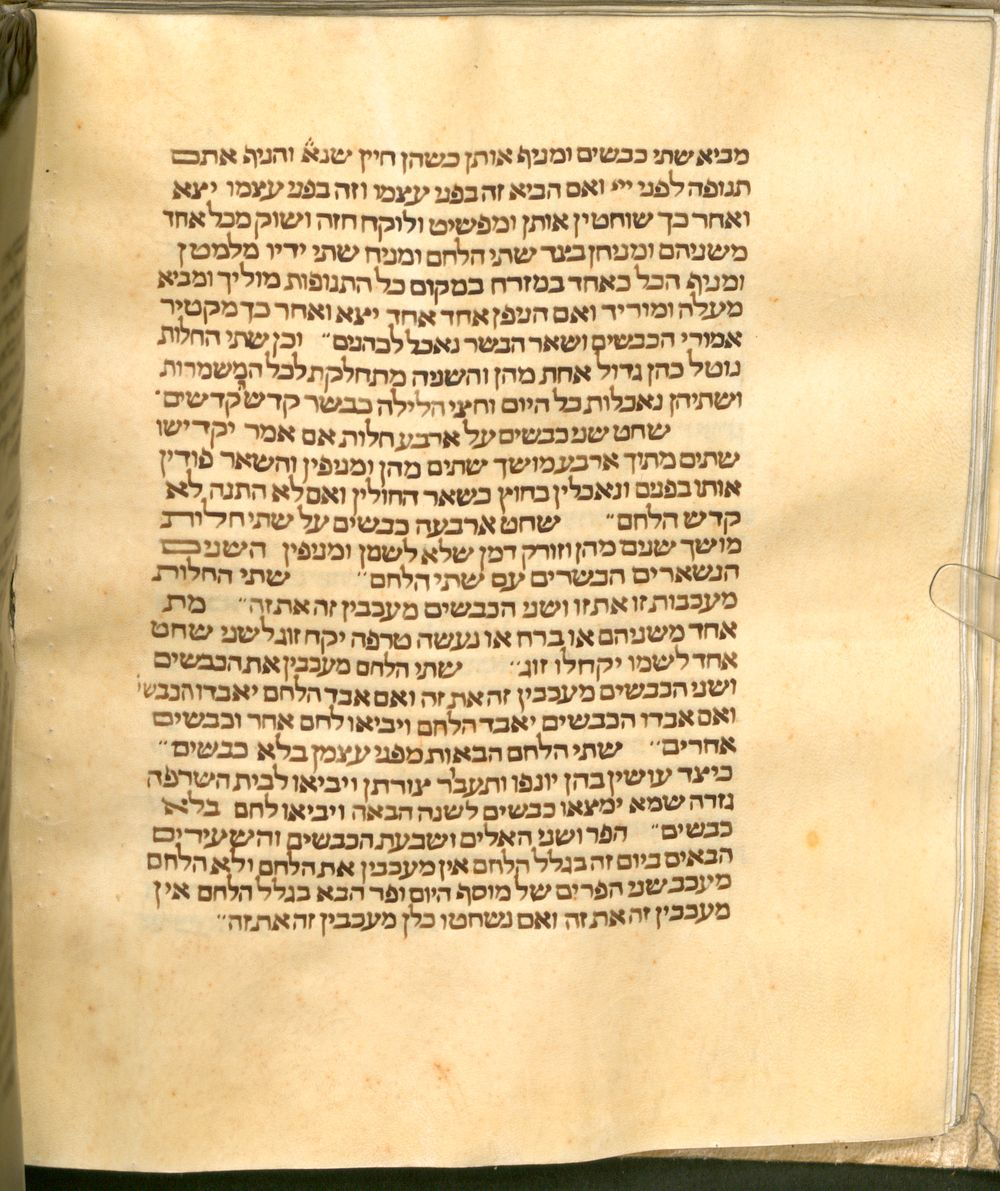 מביא שתי כבשים ומניף אותן כשהן חיין שנא והניף אתם
תנופה לפני ייי ואם הביא זה בפני עצמו וזה בפני עצמו יצא
ואחר כך שוחטין אותן ומפשיט ולוקח חזה ושוק מכל אחד
משניהם ומניחן בצד שתי הלחם ומניח שתי ידיו מלמטן
ומניף הכל כאחד במזרח במקום כל התנופות מוליך ומביא
מעלה ומוריד ואם הניפן אחד אחד יצא ואחר כך מקטיר
אמורי הכבשים ושאר הבשר נאכל לכהנים״ וכן שתי החלות
נוטל כהן גדול אחת מהן והשניה מתחלקת לכל המשמרות
ושתיהן נאכלות כל היום וחצי הלילה כבשר קדשי קדשים·
שחט שני כבשים על ארבע חלות אם אמר יקדישו
שתים מתוך ארבע מושך שתים מהן ומניפין והשאר פודין
אותו בפנים ונאכלין בחוץ כשאר החולין ואם לא התנה לא
קדש הלחם״ שחט ארבעה כבשים על שתי חלות
מושך שנים מהן וזורק דמן שלא לשמן ומניפין השנים
הנשארים הכשרים עם שתי הלחם״ שתי החלות
מעכבות זו את זו ושני הכבשים מעכבין זה את זה״ מת
אחד משניהם או ברח או נעשה טרפה יקח זוג לשני שחט
אחד לשמו יקח לו זוג״ שתי הלחם מעכבין את הכבשים
ושני הכבשים מעכבין זה את זה ואם אבד הלחם יאבדו הכבשי
ואם אבדו הכבשים יאבד הלחם ויביאו לחם אחר וכבשים
אחרים״ שתי הלחם הבאות מפני עצמן בלא כבשים״
כיצד עושין בהן יונפו ותעבר צורתן ויביאו לבית השרפה
גזרה שמא ימצאו כבשים לשנה הבאה ויביאו לחם בלא
כבשים״ הפר ושני האלים ושבעת הכבשים והשעירים
הבאים ביום זה בגלל הלחם אין מעכבין את הלחם ולא הלחם
מעכב שני הפרים של מוסף היום ופר הבא בגלל הלחם אין
מעכבין זה את זה ואם נשחטו כלן מעכבין זה את זה״